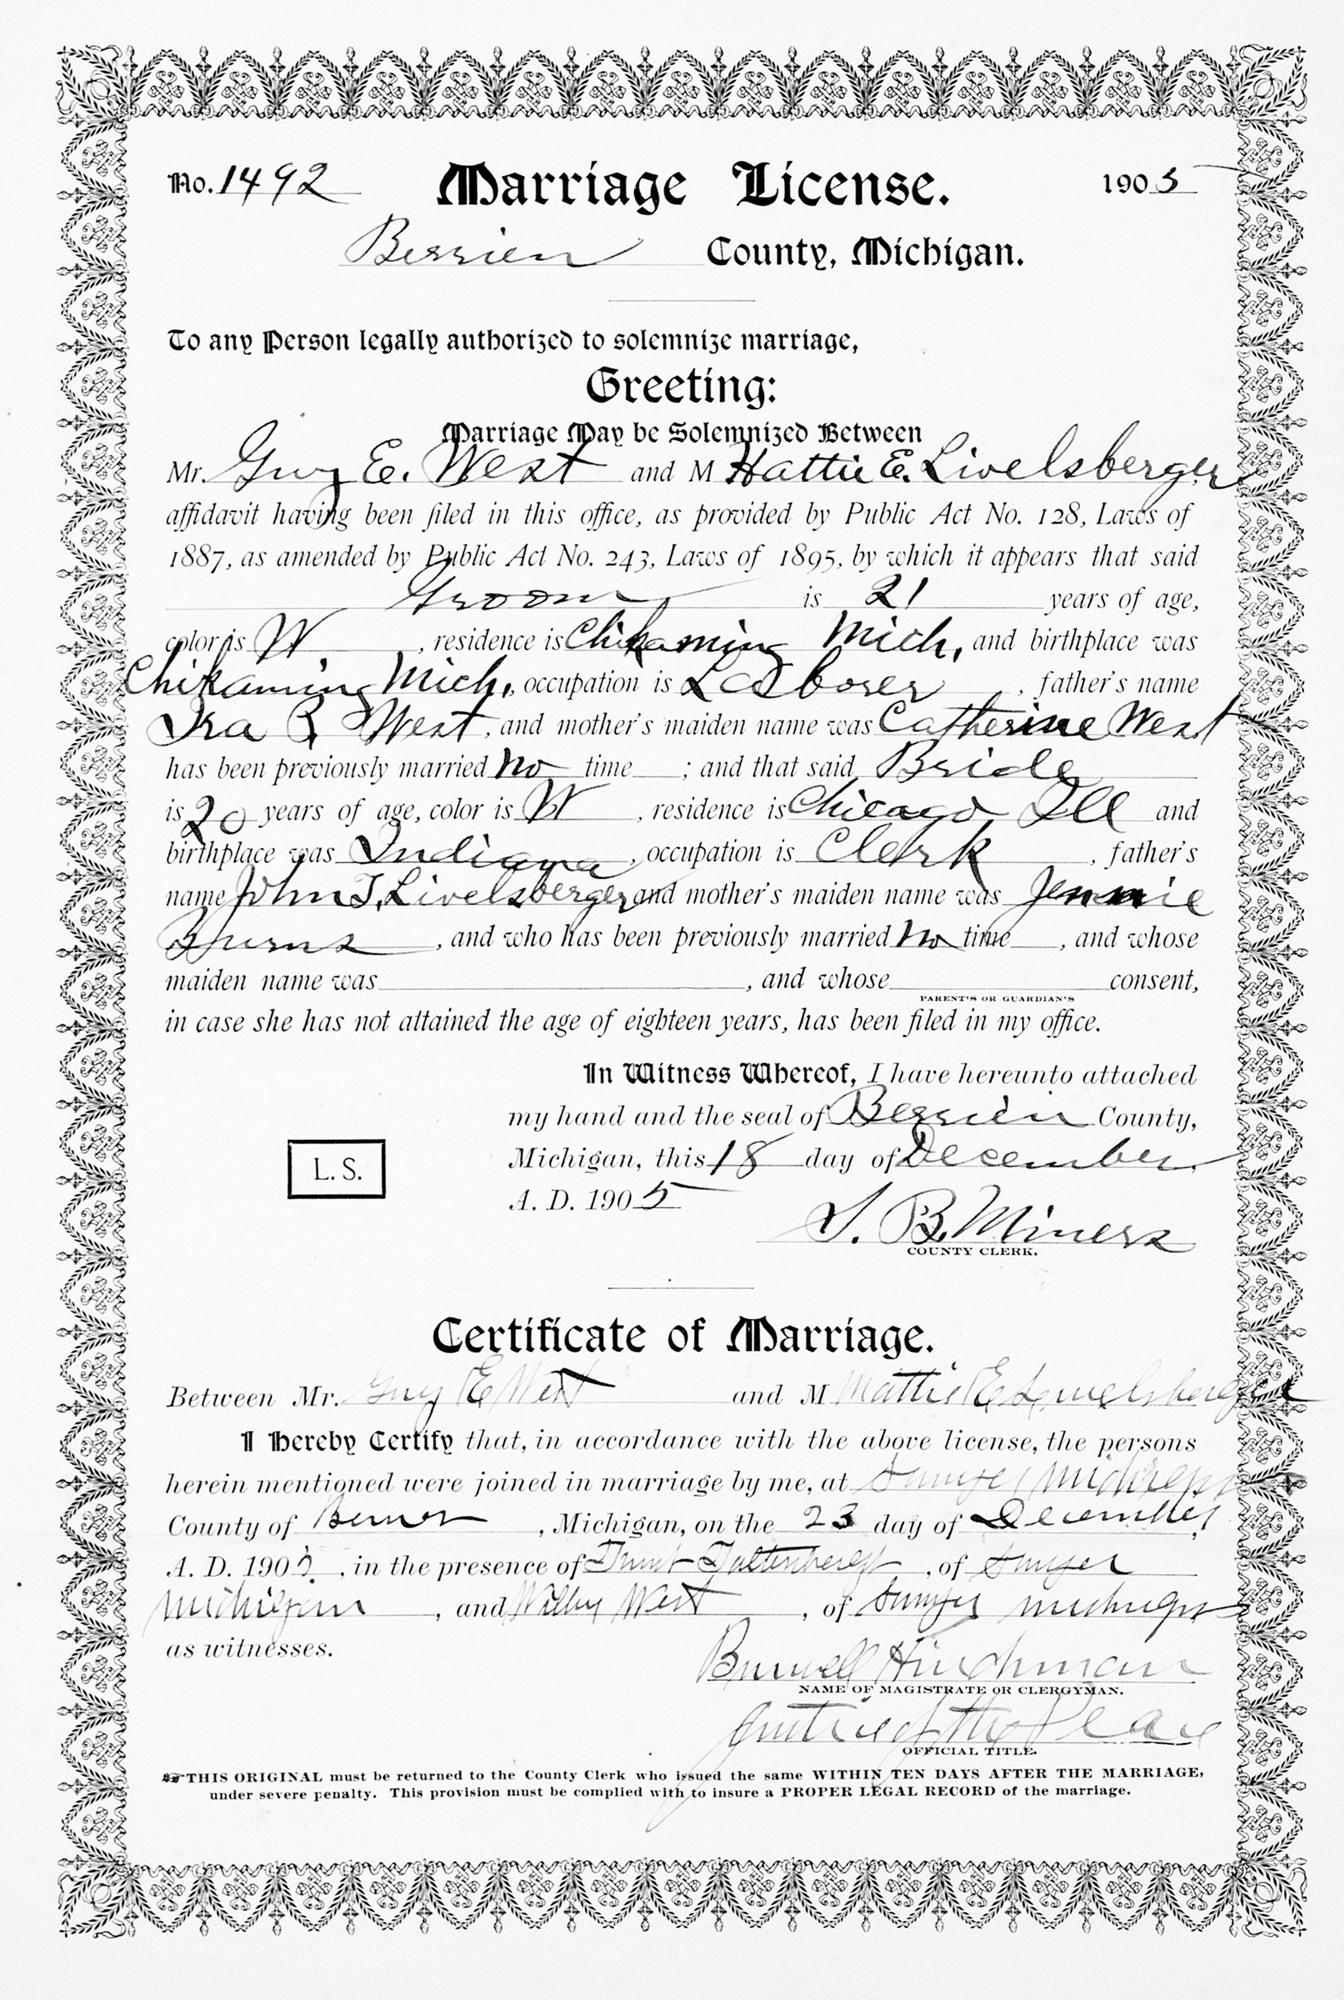 No. 1492 Marriage License. 1905
Berrien County, Michigan.
To any Person legally authorized to solemnize marriage,
Greeting:
Marriage May be Solemnized Between
Mr. Guy E. West and M Hattie E. Livelsberger
affidavit having been filed in this office, as provided by Public Act No. 128, Laws of
1887, as amended by Public Act No. 243, Laws of 1895, by which it appears that said
Groom is 21 years of age,
color is W, residence is Chikaming Mich, and birthplace was
Chikaming Mich, occupation is Laborer, father's name
Ira R West, and mother's maiden name was Catherine West
has been previously married no time; and that said Bride
is 20 years of age, color is W, residence is Chicago Ill and
birthplace was Indiana, occupation is Clerk, father's
name John T. Livelsberger and mother's maiden name was Jennie
Burns, and who has been previously married no time, and whose
maiden name was, and whose consent,
PARENT'S OR GUARDIAN'S
in case she has not attained the age of eighteen years, has been filed in my office.
In Witness Whereof, I have hereunto attached
my hand and the seal of Berrien County,
Michigan, this 18 day of December
A. D. 1905
L. S.
S. B. Miners
COUNTY CLERK.
Certificate of Marriage.
Between Mr. Guy E West and M Hattie E Livelsberger
I Hereby Certify that, in accordance with the above license, the persons
herein mentioned were joined in marriage by me, at Sawyer Michigan
County of Berrien, Michigan, on the 23 day of December,
A. D. 1905, in the presence of, of Sawyer
Michigan, and West, of Sawyer Michigan
as witnesses.
Burwell Hinchman
NAME OF MAGISTRATE OR CLERGYMAN.
Justice of the Peace
OFFICIAL TITLE.
THIS ORIGINAL must be returned to the County Clerk who issued the same WITHIN TEN DAYS AFTER THE MARRIAGE,
under severe penalty. This provision must be complied with to insure a PROPER LEGAL RECORD of the marriage.